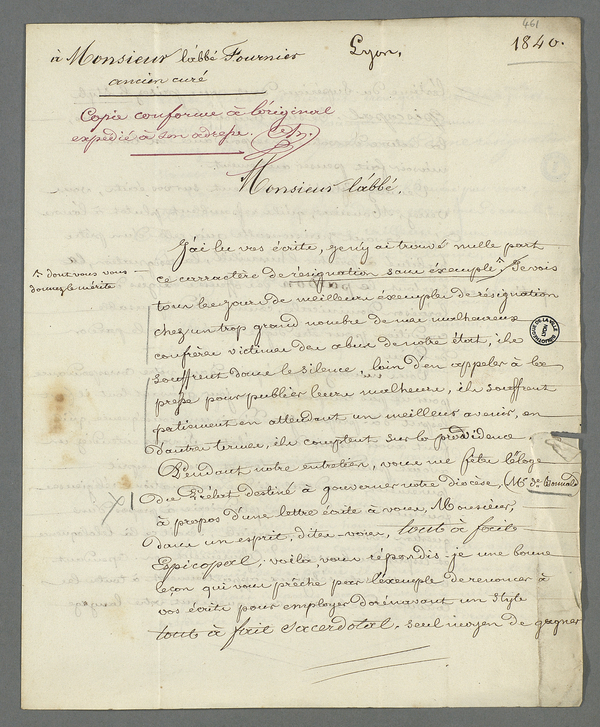 461
à Monsieur l'abbé Fournier
ancien curé
Lyon,
1840.
Copie conforme à l'original
expédié à son adresse.
Monsieur l'abbé.
J'ai lu vos écrits, je n'y ai trouvé nulle part
ce carractère de résignation sans éxemple ^. Je vois
^ dont vous vous
donnez le mérite
tous les jours de meilleurs éxemples de résignation
chez un trop grand nombre de mes malheureux
confrères victimes des abus de notre état, ils
souffrent dans le silence, loin d'en appeler à la
presse pour publier leurs malheurs, ils souffrent
patiement en attendant un meilleur avenir, en
d'autres termes, ils comptent sur la providence.
Pendant notre entretien, vous me fîtes l'éloge
du Prélat destiné à gouverner notre diocèse, (Mr de Bonnald)
à propos d'une lettre écrite à vous, Monsieur,
dans un esprit, dites-vous, tout à fait
Episcopal; voilà, vous répondis-je une bonne
leçon qui vous prêche par l'exemple de renoncer à
vos écrits pour employer dorénavant un style
tout à fait sacerdotal, seul moyen de gagner